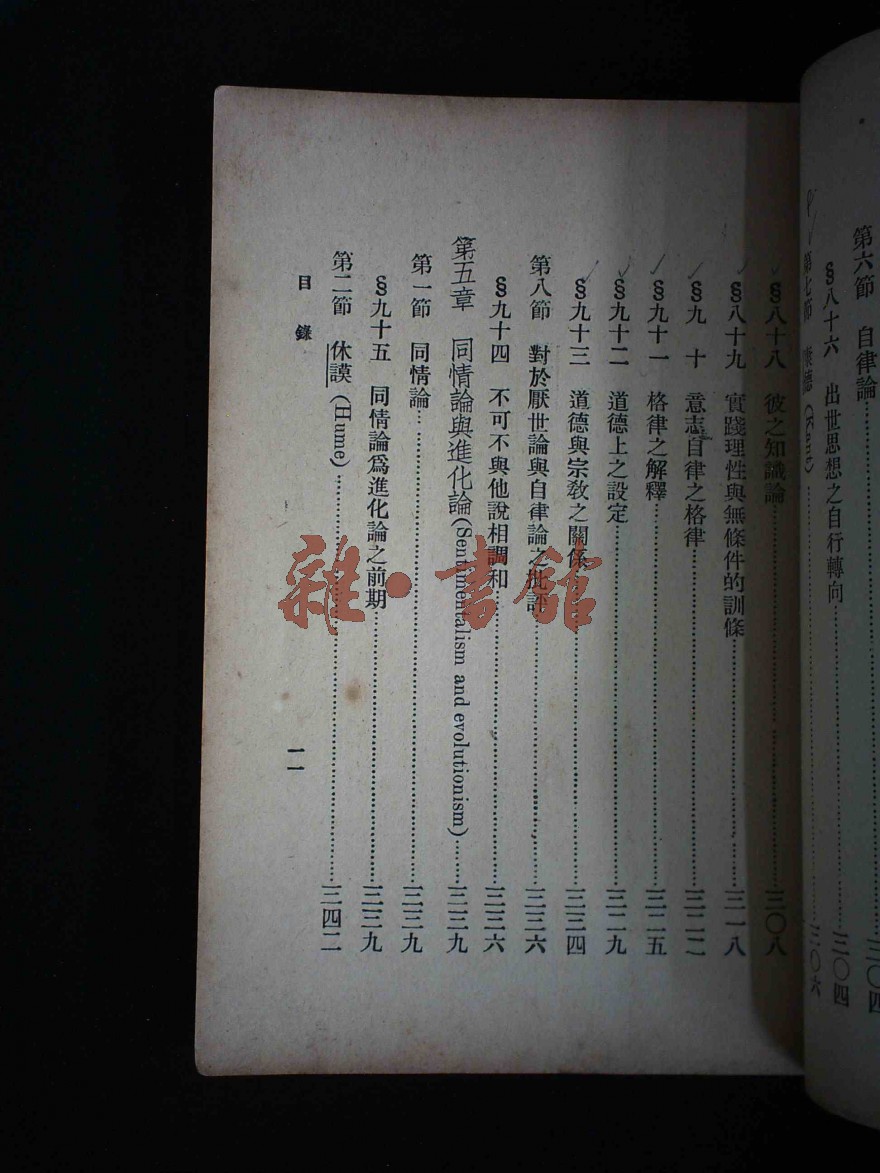 第六節　自律論…………三〇四
§八十六　出世思想之自行轉向…………三〇四
第七節　康德 (Kant)…………三〇六
§八十八　彼之知識論…………三〇八
§八十九　實踐理性與無條件的訓條…………三一八
§九十　意志自律之格律…………三二二
§九十一　格律之解釋…………三二五
§九十二　道德上之設定…………三二九
§九十三　道德與宗敎之關係…………三三四
第八節　對於厭世論與自律論之批評…………三三六
§九十四　不可不與他說相調和…………三三六
第五章　同情論與進化論(Sentimentalism and evolutionism)…………三三九
第一節　同情論…………三三九
§九十五　同情論爲進化論之前期…………三三九
第二節　休謨 (Hume)…………三四二
目錄
一一
雜·書館